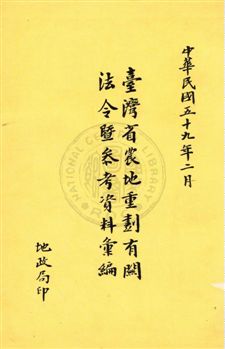 中華民國五十九年二月
臺灣省農地重劃有關
法令暨參考資料彙編
地政局印
NATIONAL CENTRAL LIBRARY